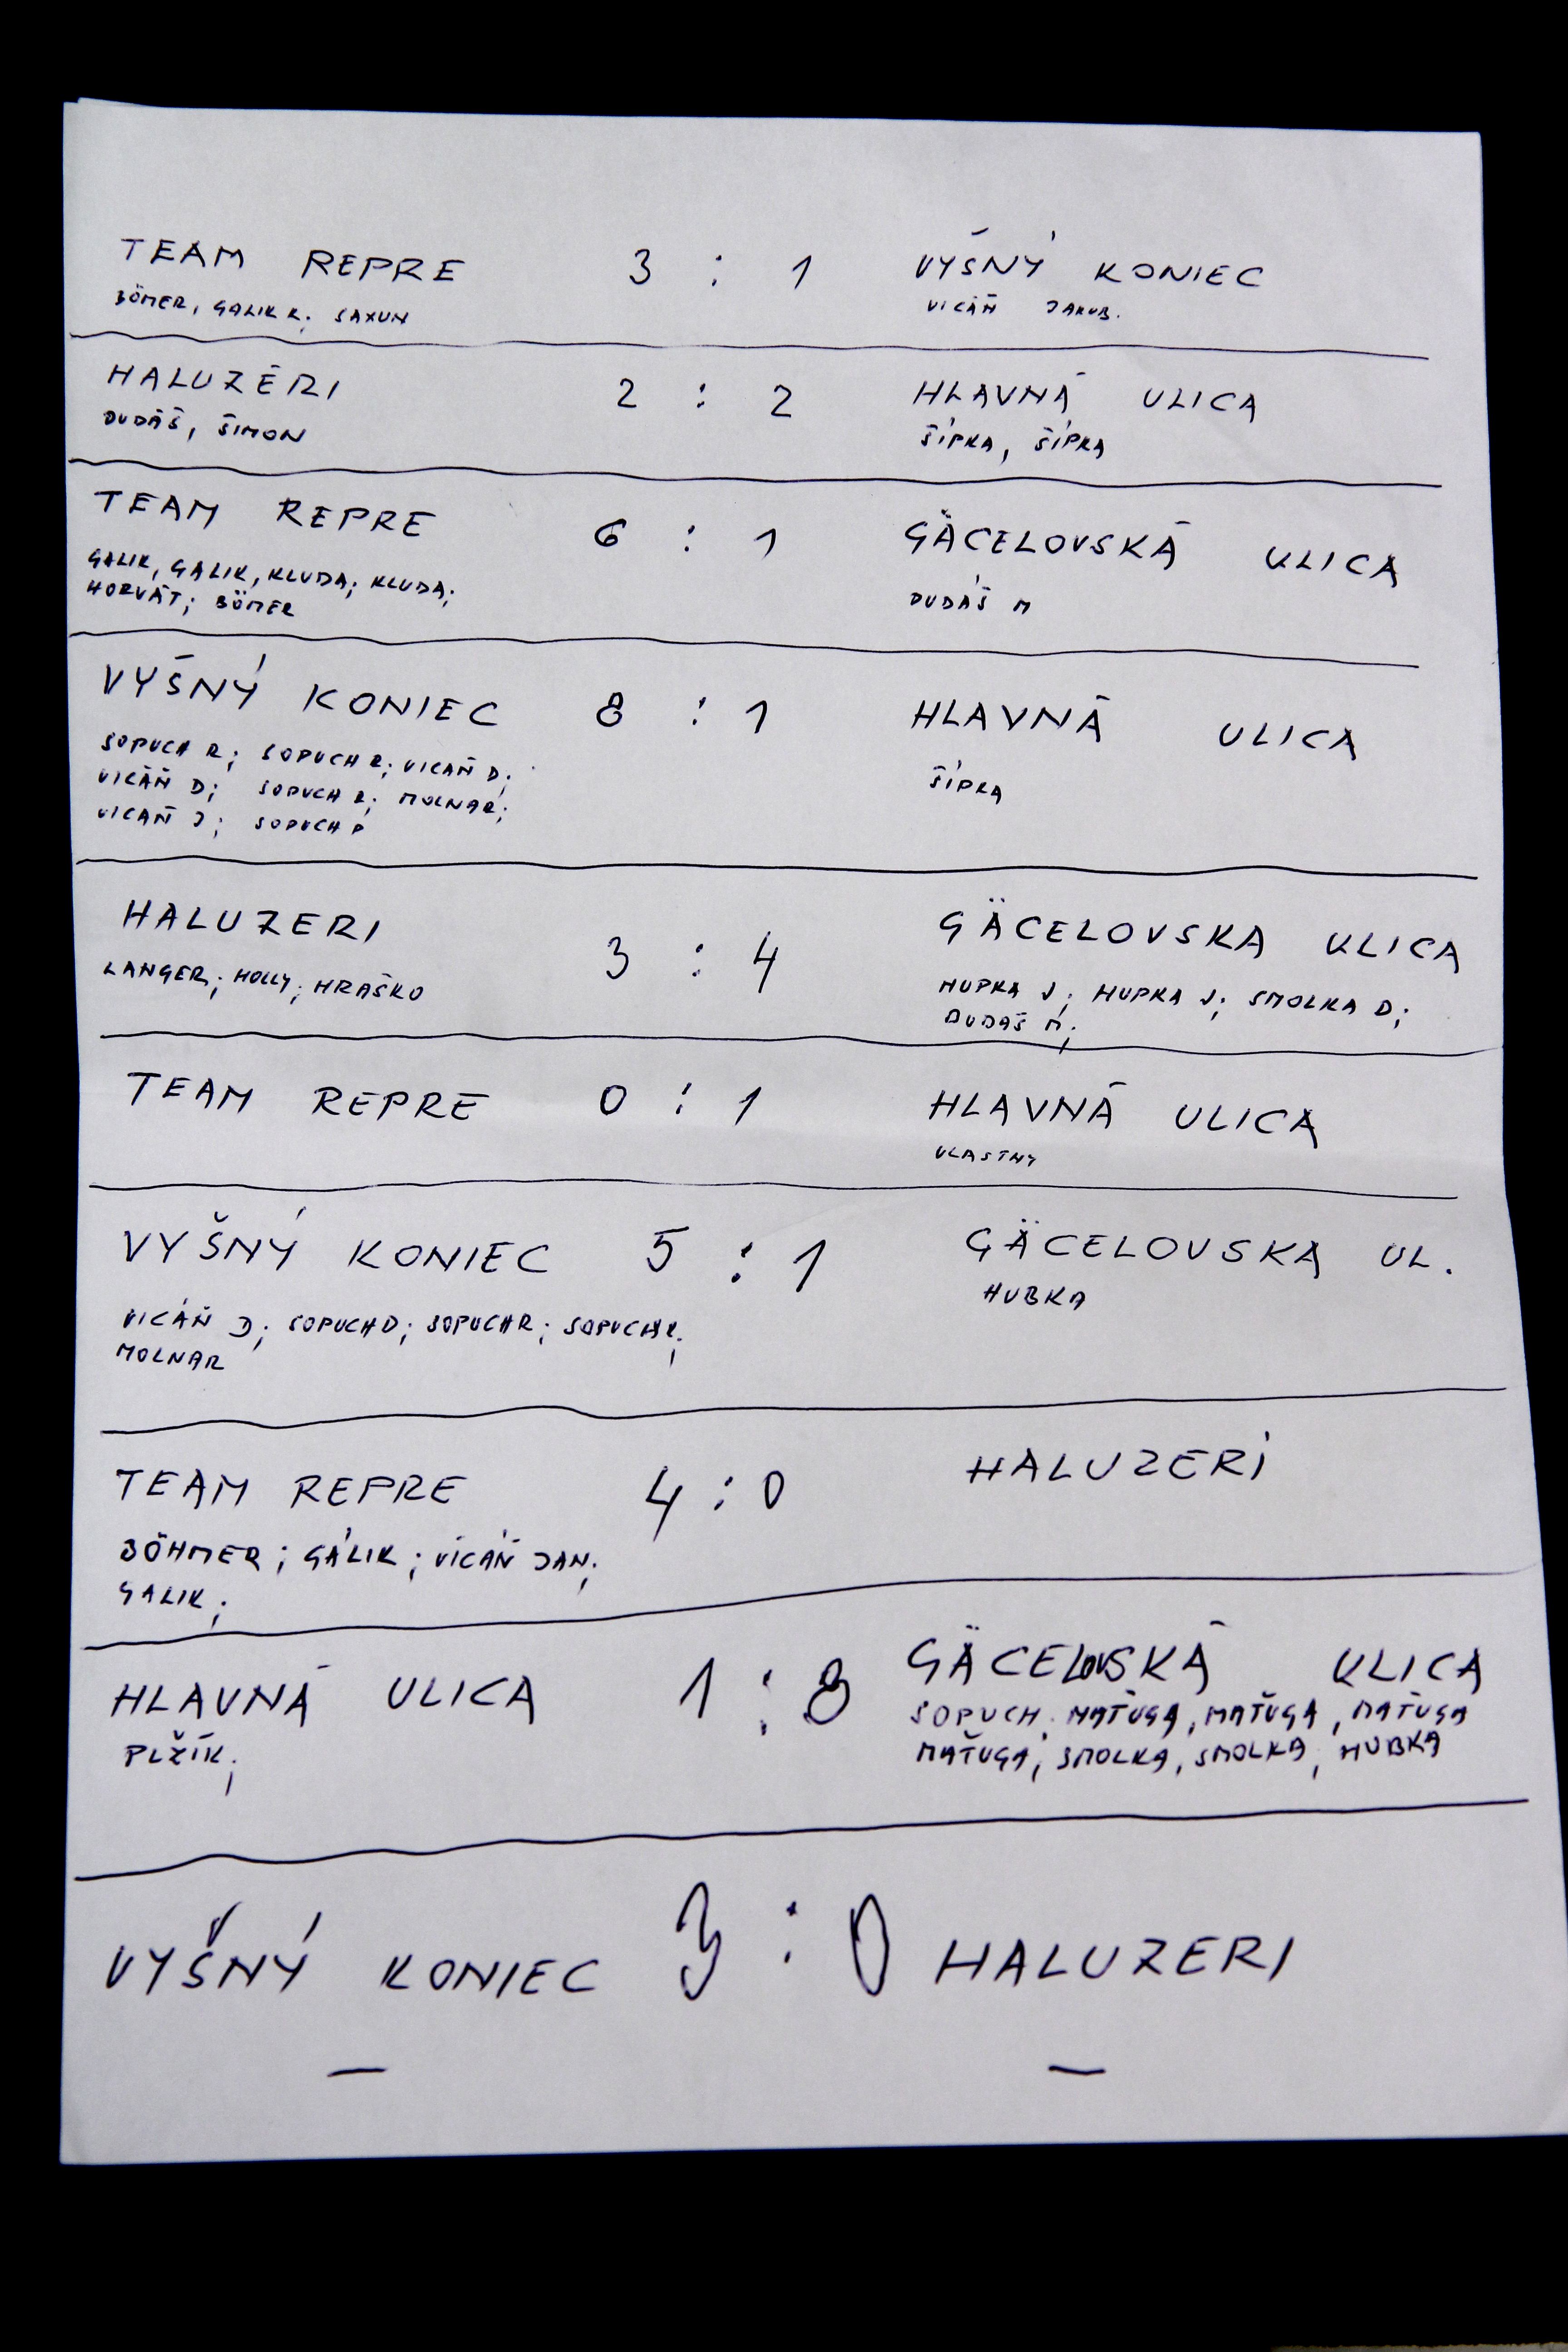 TEAM REPRE 3 : 1 VYŠNÝ KONIEC
BÖMER, GALIK R; SAXUN VICÁŇ JAKUB.
HALUZÉRI 2 : 2 HLAVNÁ ULICA
DUDÁŠ, ŠIMON ŠÍPKA, ŠÍPKA
TEAM REPRE 6 : 1 GÄCELOVSKÁ ULICA
GALIK, GALIK, KLUDA; KLUDA; DUDÁŠ M
HORVÁT; BÖMER
VYŠNÝ KONIEC 8 : 1 HLAVNÁ ULICA
SOPUCH R; SOPUCH R; VICAŇ D; ŠÍPKA
VICÁŇ D; SOPUCH R; MOLNAR;
VICAŇ J; SOPUCH P
HALUZERI 3 : 4 GÄCELOVSKA ULICA
LANGER; HOLLY; HRAŠKO HUPKA J; HUPKA J; SMOLKA D;
DUDAŠ M;
TEAM REPRE 0 : 1 HLAVNÁ ULICA
VLASTNY
VYŠNÝ KONIEC 5 : 1 GÄCELOVSKA UL.
VICÁŇ D; SOPUCH D; SOPUCH R; SOPUCH R; HUBKA
MOLNAR
TEAM REPRE 4 : 0 HALUZERI
BÖHMER; GÁLIK; VICÁŇ JAN;
GALIK;
HLAVNÁ ULICA 1 : 8 GÄCELOVSKÁ ULICA
PLŽÍK; SOPUCH; MAŤUGA, MAŤUGA, MAŤUGA
MAŤUGA; SMOLKA, SMOLKA, HUBKA
VYŠNÝ KONIEC 3 : 0 HALUZERI
— —